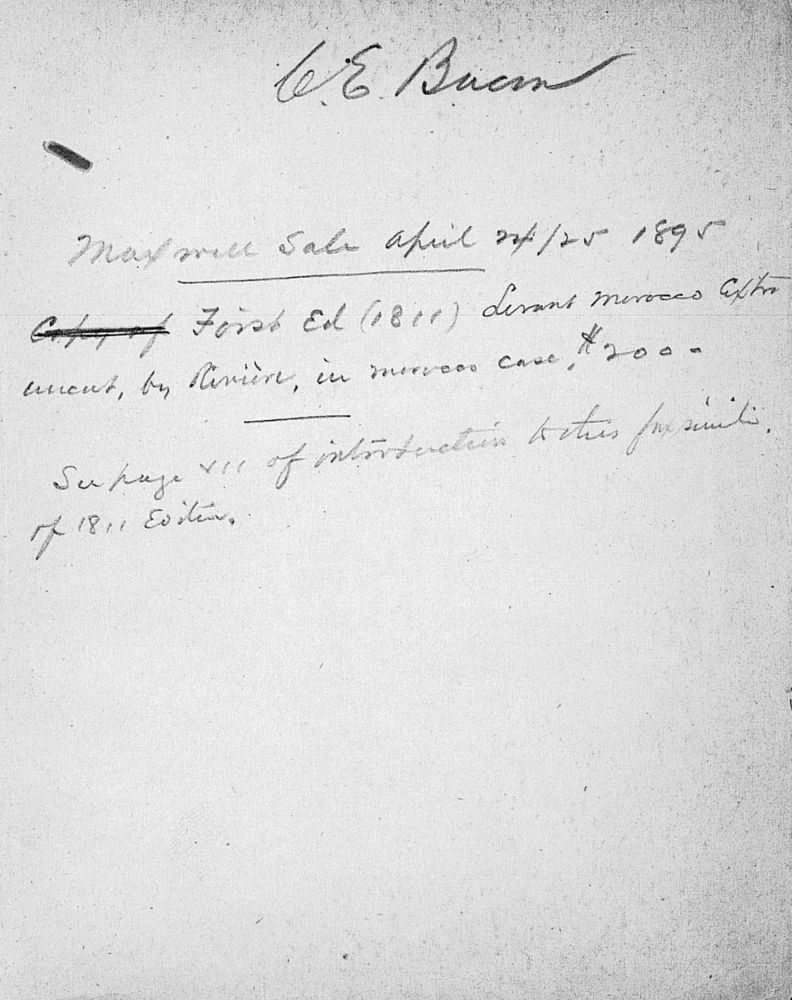 C. E. Bacon
Maxwell Sale April 24/25 1895
Copy of First Ed (1811) Levant morocco Extra
uncut, by Rivière, in morocco case, $200-
See page XII of introduction to this facsimile
of 1811 Edition.